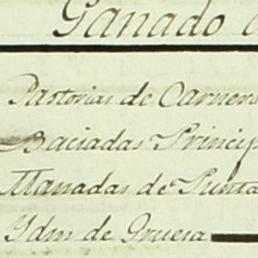 Ganado
Pastorias de Carnero
Baciadas Princip
Manadas de Punta
Ydm de Grueia